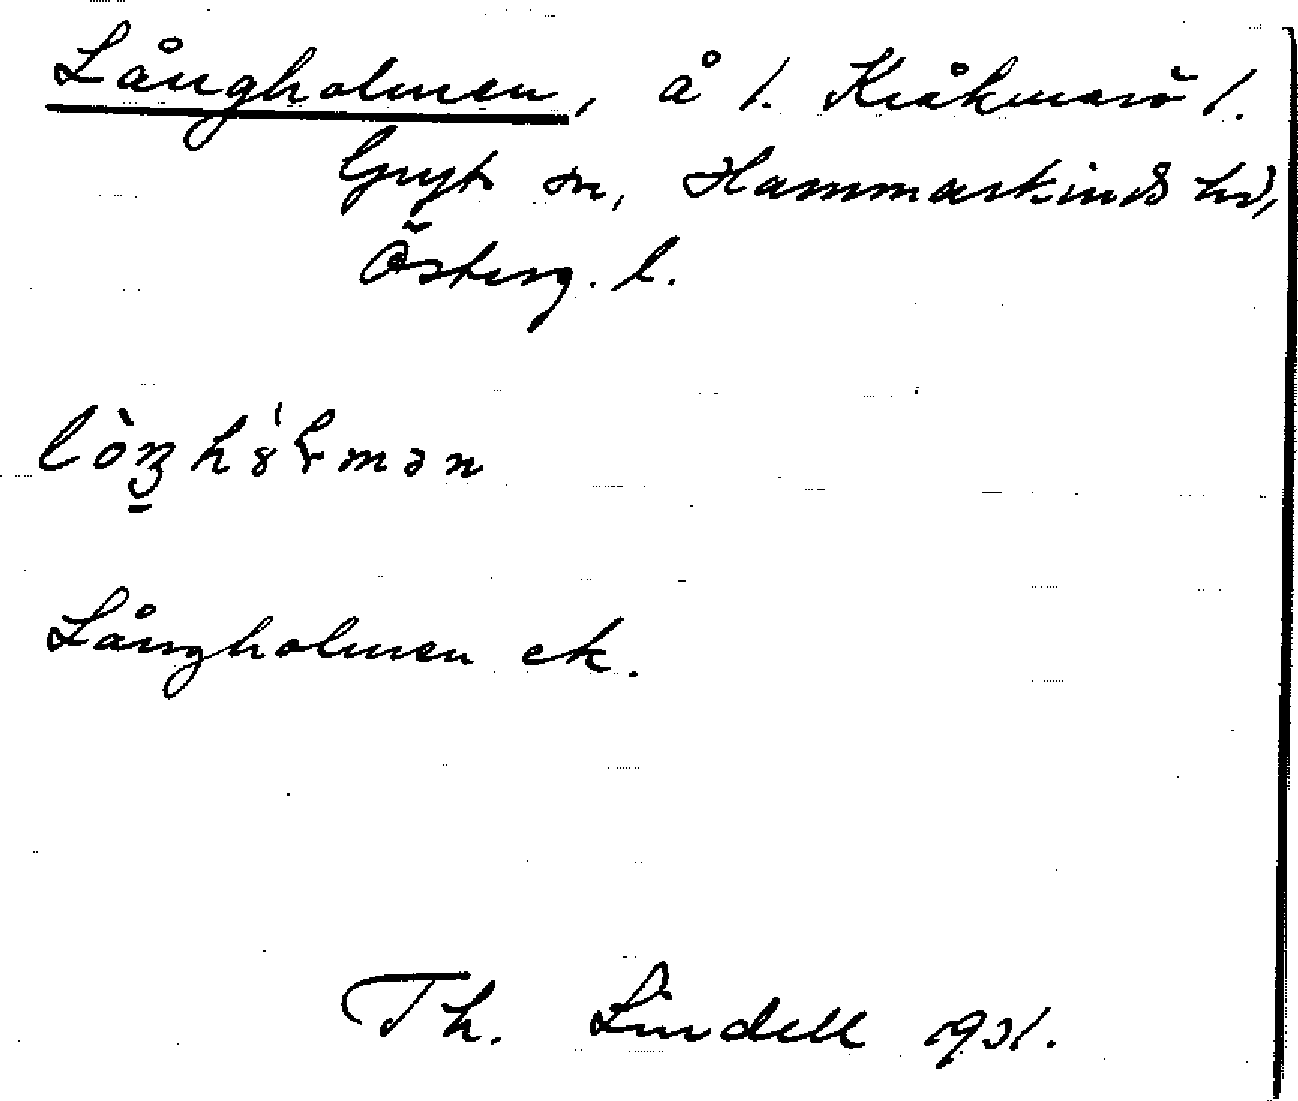 Långholmen, å 1. Kråkmarö 1.
Gryt sn, Hammarkinds hd,
Österg. l.
Långholmen ek.
Th. Lindell 1931.